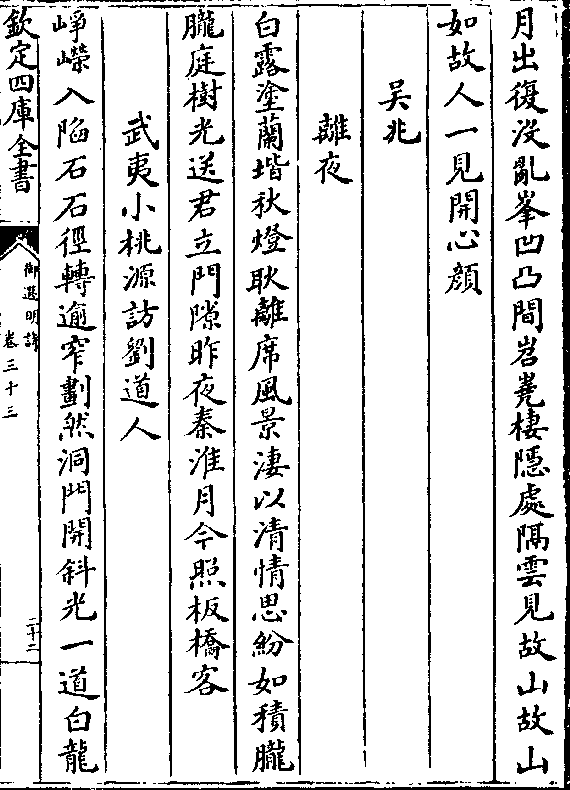 月出復没亂峯凹凸間岧嶤棲隱處隔雲見故山故山
如故人一見開心顔
吴兆
離夜
白露塗蘭堦秋燈耿離席風景淒以清情思紛如積朧
朧庭樹光送君立門隙昨夜秦淮月今照板橋客
武夷小桃源訪劉道人
崢嶸入陷石石徑轉逾窄劃然洞門開斜光一道白龍
欽定四庫全書
御選明詩
卷三十三
三十二